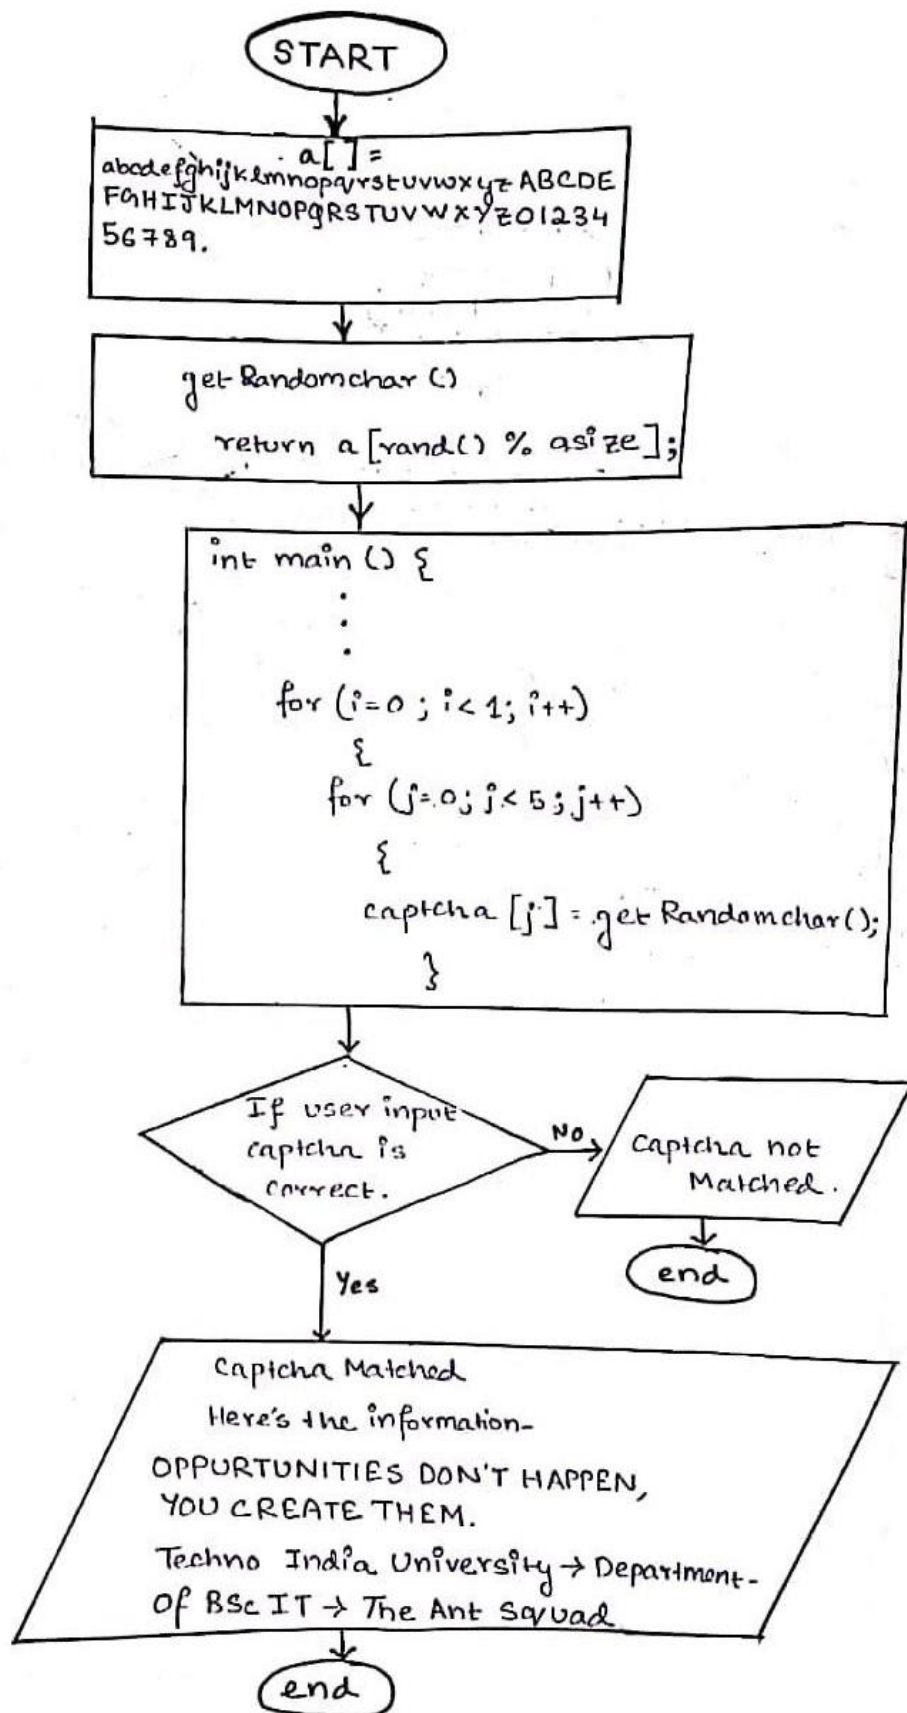 START
a[ ] =
abcdefghijklmnopqrstuvwxyzABCDE
FGHIJKLMNOPQRSTUVWXYZ01234
56789.
getRandomchar ()
return a [rand() % asize];
int main () {
.
.
.
for (i=0 ; i< 1; i++)
{
for (j=0; j< 5; j++)
{
captcha [j] = getRandomchar();
}
If user input
captcha is
correct.
No
Captcha not
Matched.
end
Yes
Captcha Matched
Here's the information-
OPPURTUNITIES DON'T HAPPEN,
YOU CREATE THEM.
Techno India University → Department-
Of BSc IT → The Ant Squad
end